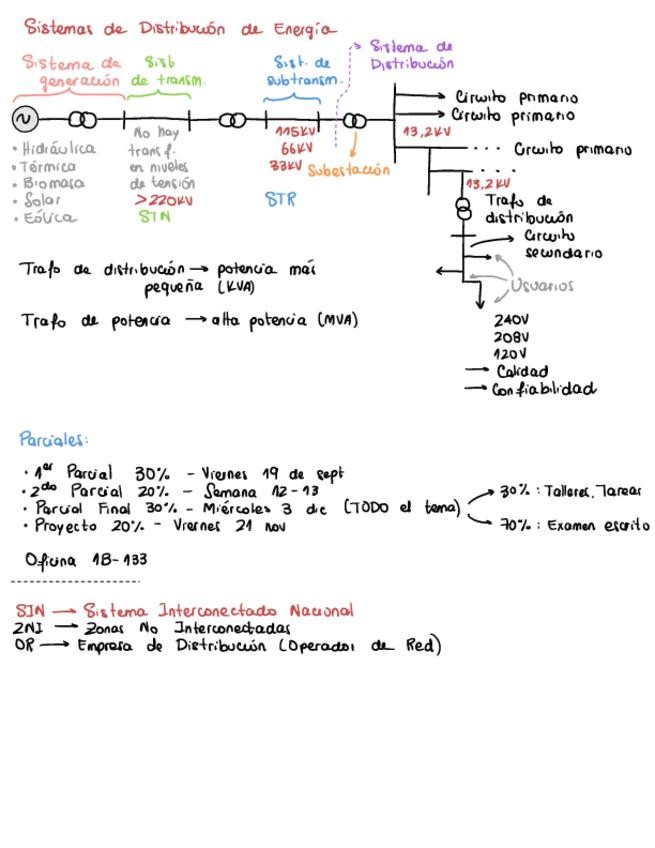 Sistemas de Distribución de Energía
Sistema de generación
Sist de transm.
Sist. de subtransm.
Sistema de Distribución
~
• Hidráulica
• Térmica
• Biomasa
• Solar
• Eólica
No hay
transf.
en niveles
de tensión
>220KV
STN
115KV
66KV
33KV
STR
Subestación
13,2KV
Circuito primario
Circuito primario
... Circuito primario
....
13,2KV
Trafo de
distribución
Circuito
secundario
Usuarios
240V
208V
120V
→ Calidad
→ Confiabilidad
Trafo de distribución → potencia más
pequeña (KVA)
Trafo de potencia → alta potencia (MVA)
Parciales:
• 1er Parcial 30% - Viernes 19 de sept
• 2do Parcial 20% - Semana 12-13
• Parcial Final 30% - Miércoles 3 dic (TODO el tema)
→ 30%: Talleres, Tareas
→ 70%: Examen escrito
• Proyecto 20% - Viernes 21 nov
Oficina 1B-133
SIN → Sistema Interconectado Nacional
ZNI → Zonas No Interconectadas
OR → Empresa de Distribución (Operador de Red)